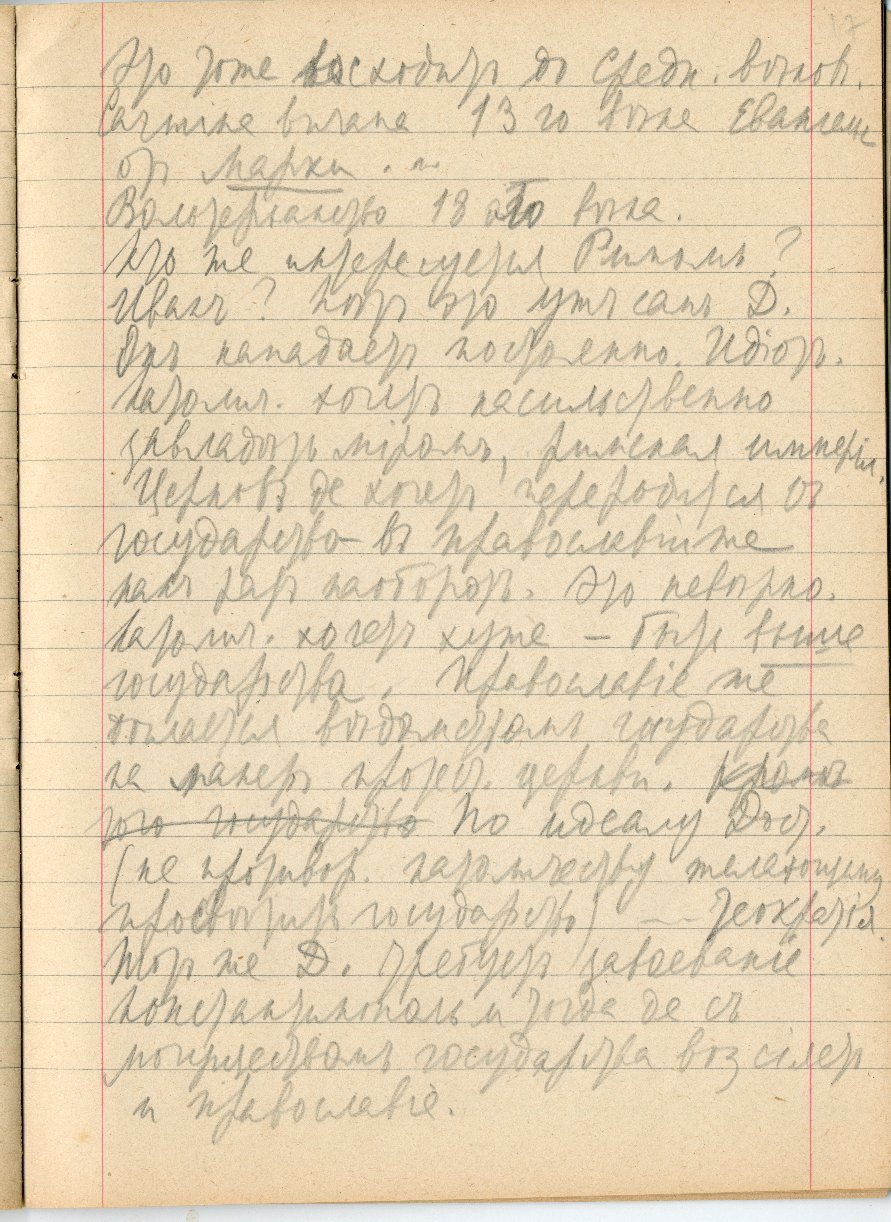 17
Это тоже восходитъ до средн. вѣковъ.
Сатина 13 го вѣка Евангелье
отъ Марка.
Вольтерьянство 18 го вѣка.
Кто же интересуется Римомъ?
Иванъ? Нѣтъ это ужъ самъ Д.
Онъ нападаетъ постоянно. Идіотъ.
Католич. хочетъ насильственно
завладѣть міромъ, римская имперія.
Церковь де хочетъ переродиться въ
государство – въ православіи же
какъ разъ наоборотъ. Это невѣрно.
Католич. хочетъ хуже – быть выше
государства. Православіе же
является вѣдомствомъ государства
на манеръ протест. церкви. Кромѣ
того государство По идеалу Дост.
(не противор. католичеству желающему
просвѣтить государство) — теократія.
Тотъ же Д. требуетъ завоеваніе
Константинополь и тогда де съ
могуществомъ государства возсіяетъ
и православіе.